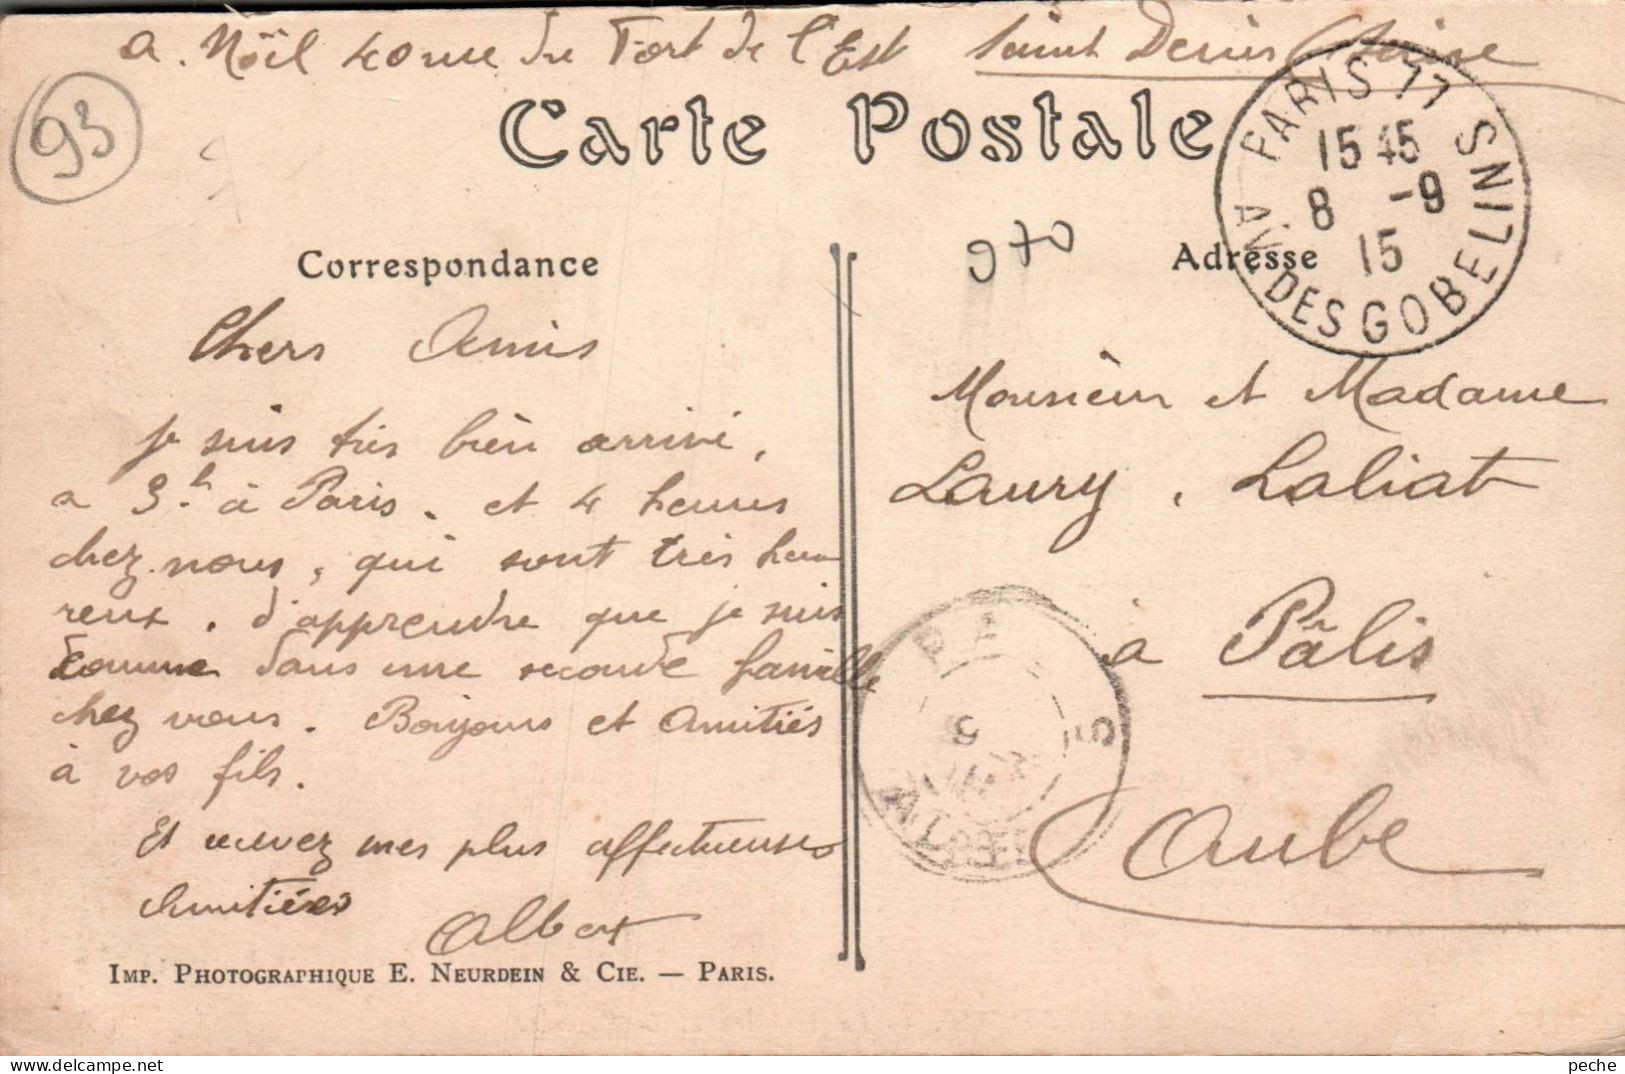 A. Noël 40 rue du Fort de l'Est Saint Denis (Seine
93
Carte Postale
PARIS 77
15 45
8 -9
15
AV. DES GOBELINS
Correspondance
Adresse
Chers Amis
je suis très bien arrivé,
a 3h à Paris. et 4 heures
chez nous, qui sont très heu
reux. d'apprendre que je suis
comme dans une seconde famille
chez vous. Bonjours et Amitiés
à vos fils.
Et recevez mes plus affectueuses
Amitiées
Albert
Monsieur et Madame
Laury, Laliat
à Pâlis
Aube
Imp. Photographique E. Neurdein & Cie. — Paris.
peche